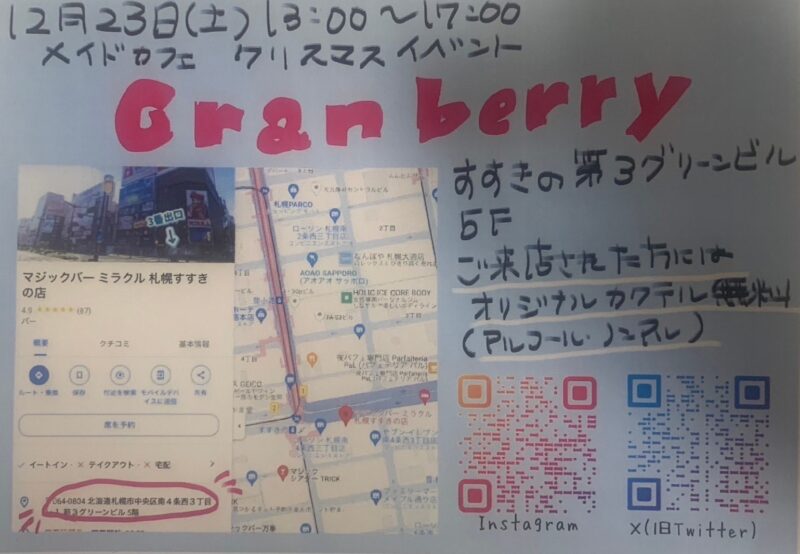 12月23日(土) 13:00～17:00
メイドカフェ クリスマス イベント
Granberry
すすきの第3グリーンビル
5F
ご来店された方には
オリジナルカクテル無料
(アルコール・ノンアル)
3番出口
マジックバー ミラクル 札幌すすき
の店
4.9 ★★★★★ (87)
バー
概要 クチコミ 基本情報
ルート・乗換 保存 付近を検索 モバイルデバ
イスに送信 共有
席を予約
✓ イートイン · × テイクアウト · × 宅配
〒064-0804 北海道札幌市中央区南4条西3丁目
第3グリーンビル 5階
札幌PARCO
ローソン 札幌南
2条西三丁目店
2丁目
なんばや 札幌大通店
AOAO SAPPORO
(アオアオ サッポロ)
HOLIC ICE CORE BODY
夜パフェ専門店 Parfaiteria
PaL (パフェテリア パル)
GEICO
マジックバー ミラクル
札幌すすきの店
ローソン 札幌南
4条西三丁目店
マジック
シアター TRICK
Instagram
X(旧Twitter)